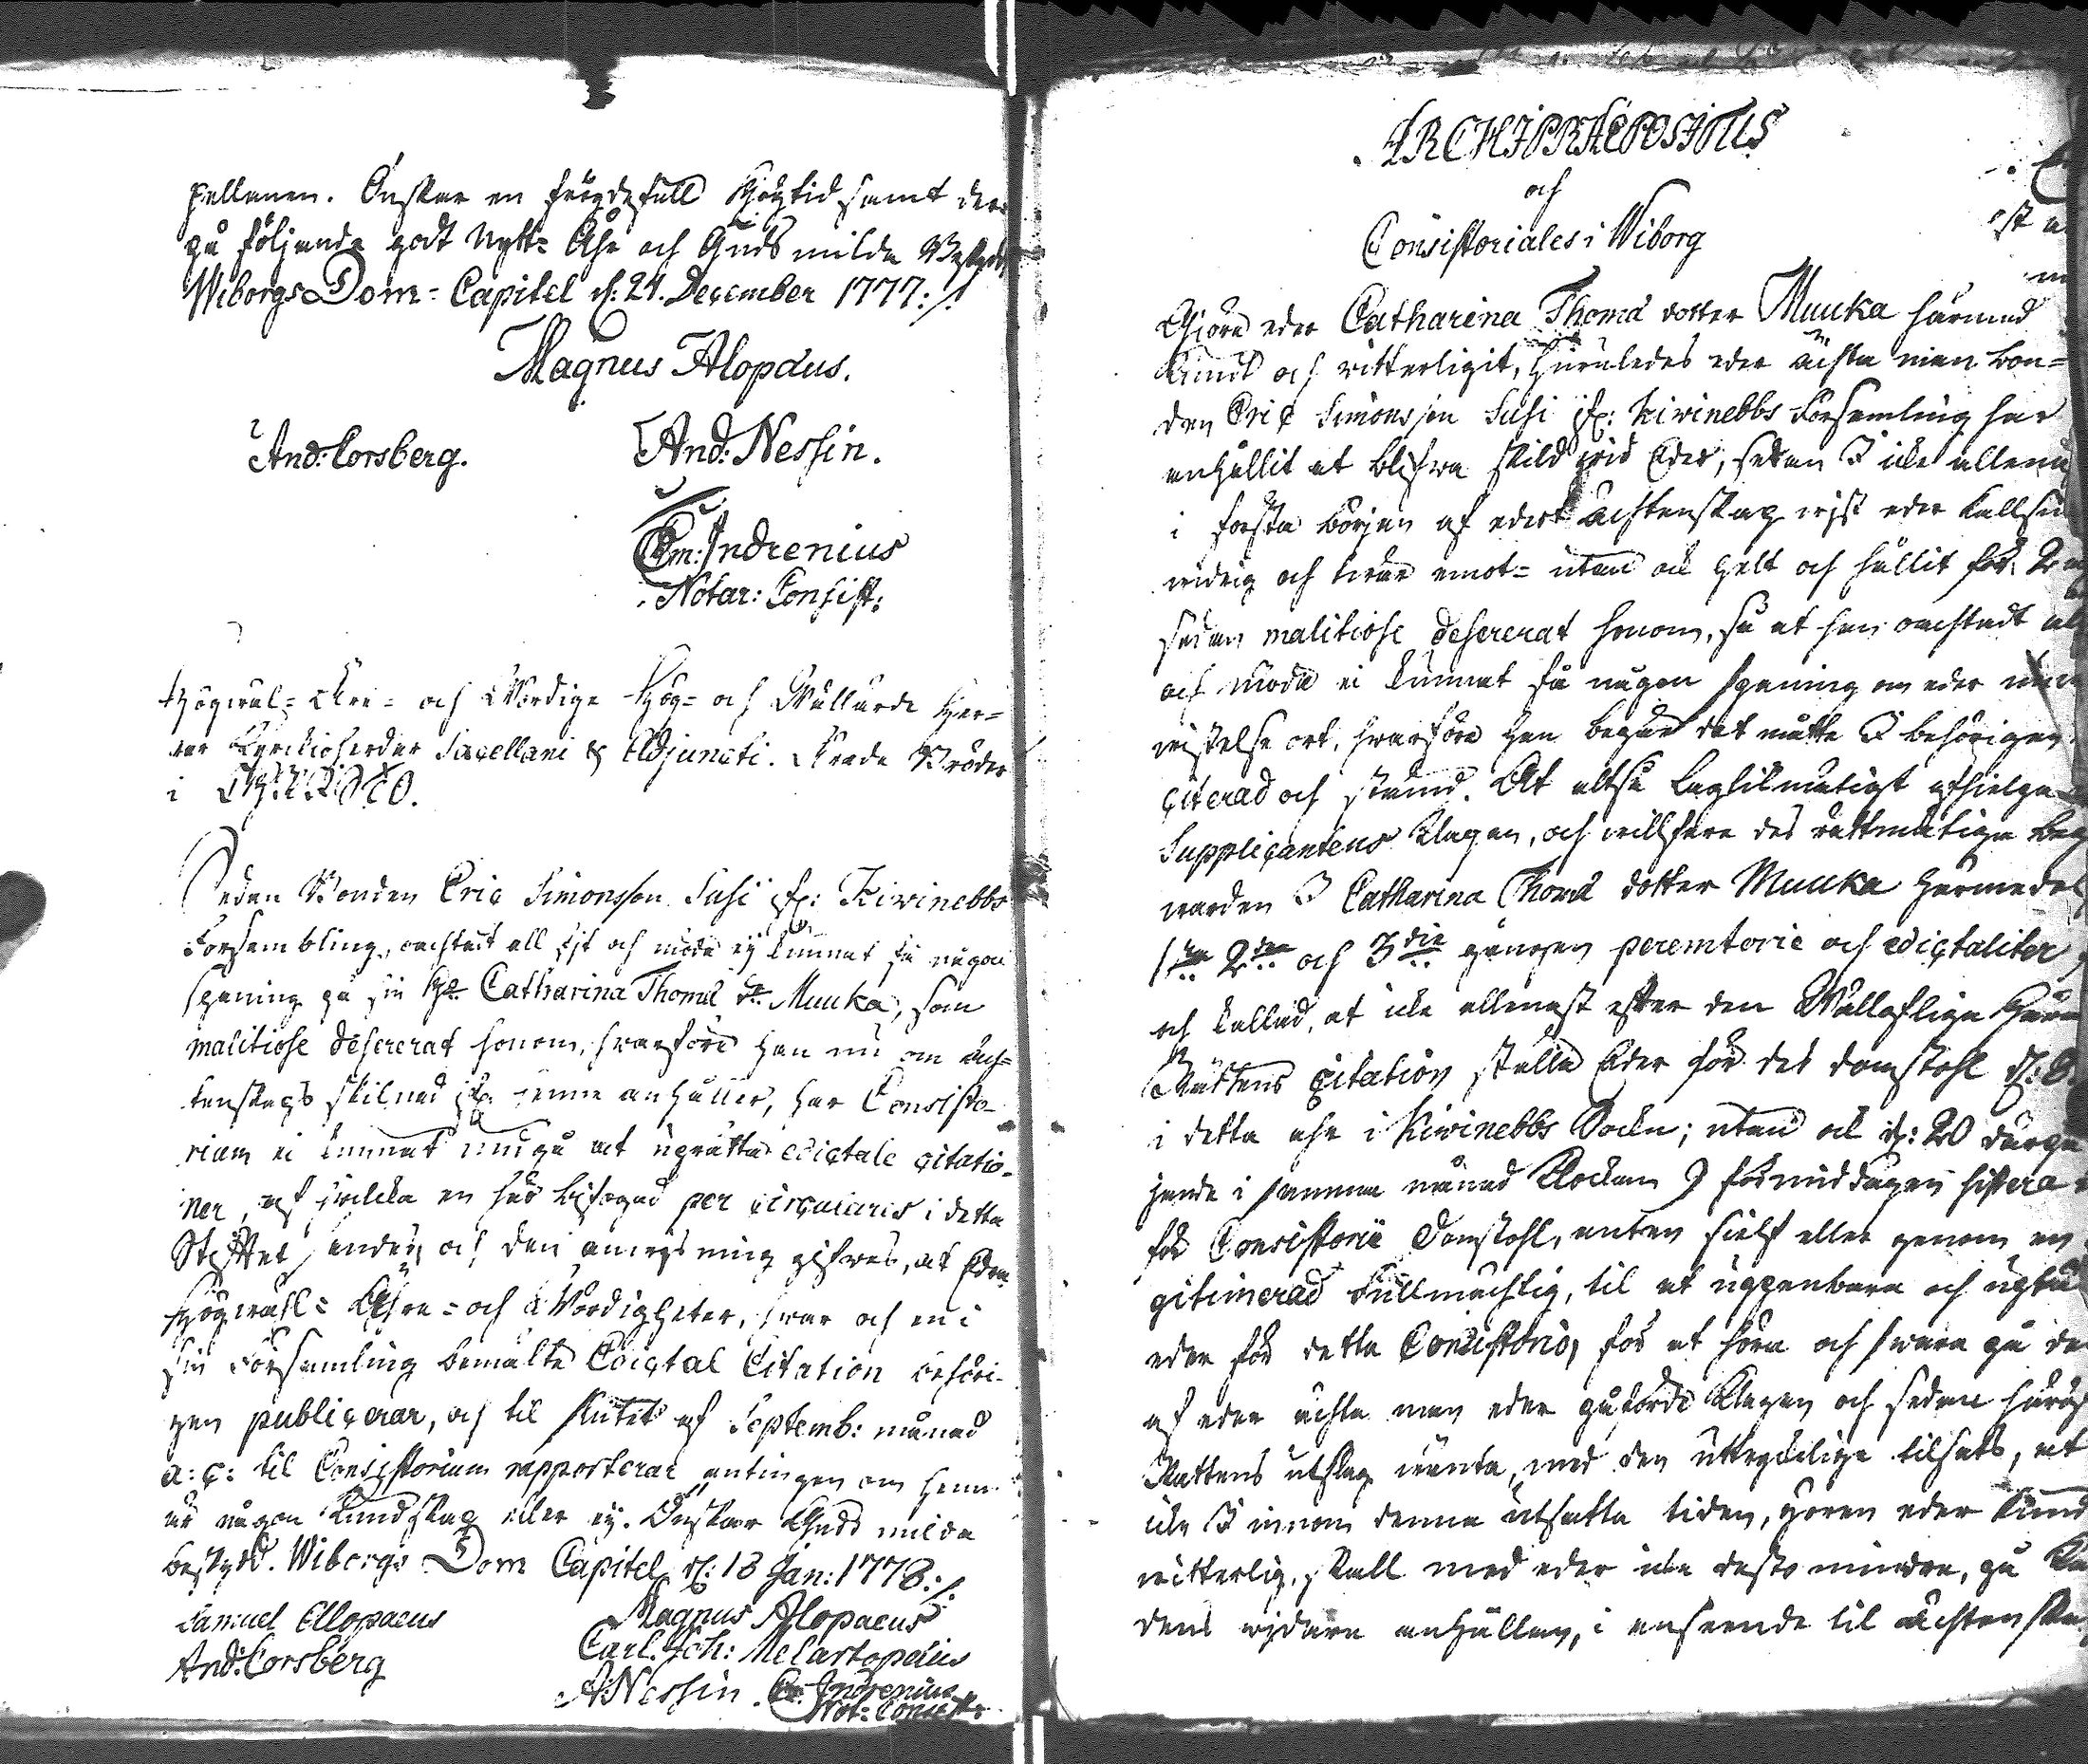 pellanen. Önskar en fröÿdefull Högtid samt der
på följande godt Nytt Åhr och Guds milda Beskydd
Wiborgs Dom-Capitel d: 24. December 1777:/.
Magnus Alopæus.
And: Corsberg.
And: Nessin.
Em: Indrenius
Notar: Consist:
Högwäl- Ähre- och Wördige Hög- och Wällärde Her-
rar Kyrckioherdar Sacellani & Adjuncti. Ährade Bröder
i
Sedan Bonden Eric Simonsson Susi if: Kiwinebbs
Försambling, oachtadt all flit och möda ej kunnat få någon
spaning på sin Hu Catharina Thomæ dr Muuka, som
malitiose desererat honom, hwarföre han nu om äch-
tenskaps skilnad ifr: henne anhåller, har Consisto-
rium ei kunnat undgå at uprätta edictale citatio-
ner, af hwilka en här bifogad per circulaires i detta
Stiftet sendes, och den anwijsning gifwes, at Edra
Högwähl- Ähre- och Wördigheter, hwar och en i
sin Församling bemälte Edictal Citation behöri-
gen publicerar, och til slutet af Septemb: månad
a: c: til Consistorium rapporterar antingen om henne
är någon Kundskap eller ej. Önskar Guds milda
beskydd. Wiborgs Dom Capitel d: 13 Jan: 1778:/.
Samuel Allopaeus
Magnus Alopaeus
And: Corsberg
Carl. Joh: Melartopæus
A: Nessin. Em: Indrenius
Not: Consist:
ARCHIPRAEPOSITUS
och
Consistoriales i Wiborg
Giöre eder Catharina Thomæ dotter Muuka härmed
Kundt och witterligit, huruledes eder ächta man bon-
den Eric Simonsson Susi if: Kiwinebbs Församling har
anhållit at blifwa skild wid Eder, sedan I icke allena
i första början af edert ächtenskap wist eder kallsin
widrig och twär emot- utan ock helt och hållit för 2
sedan malitiose desererat honom, så at han oachtadt all
och möda ei kunnat få någon spaning om eder
wistelse ort, hwarföre han begär det måtte I behörigen
citerad och stämd. At altså laglikmätigt afhielpa
Supplicantens Klagan, och willfara des rättmätiga beg
warden I Catharina Thomæ dotter Muuka härmedels
1ma 2da och 3die gången peremtorie och edictaliter
och kallad, at icke allenast efter den Wällofliga Hära
Rättens citation ställa Eder för des domstohl d:
i detta åhr i Kiwinebbs Sockn; utan ock d: 20 därpå
jande i samma månad Klockan 9 förmiddagen sistera
för Consistorii Domstohl, anten sielf eller genom en
gitimerad Fullmächtig, til at uppenbara och uptä
eder för detta Consistorio, för at höra och swara på de
af eder ächta man eder påförde Klagan och sedan härå
Rättens utslag wänta, med den uttryckelige tilsats, at
icke I innom denna utsatta tiden, giören eder kund
witterlig, skall med eder icke desto mindre, på Kä
dens widare anhållan, i anseende til ächtenska